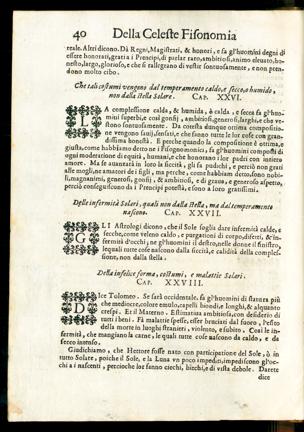 40 Della Celeste Fisonomia
reale. Altri dicono. Dà Regni, Magistrati, & honori, e fa gl'huomini degni di
essere honorati, gratia i Prencipi, di parlar raro, ambitiosi, animo eleuato, ho-
nesto, largo, glorioso, e che si rallegrano di vestir sontuosamente, e non pren-
dono molto cibo.
Che tali costumi vengono dal temperamento caldo, e secco, ò humido,
non dalla stella Solare. CAP. XXVI.
LA complessione calda, & humida, ò calda, e secca fa gl'huo-
mini superbi, e così gonfij, ambitiosi, generosi, larghi, e che ve-
stono sontuosamente. Da cotesta dunque ottima compositio-
ne vengono sauij, sensati, e che fanno tutte le lor cose con gran-
dissima honestà. E perche quando la complessione è ottima, e
giusta, come habbiamo detto ne i Fisonomici, fa gl'huomini composti di
ogni moderatione di equità, humani, che honorano i lor padri con intiero
amore. Ma se auanzarà in loro la siccità, gli fa pudichi, e perciò non grati
alle mogli, ne amatori de i figli, ma perche, come habbiam detto, sono nobi-
li, magnanimi, generosi, gonfij, & ambitiosi, e di grato, e generoso aspetto,
perciò conseguiscono da i Prencipi potestà, e sono a loro gratissimi.
Delle infermità Solari, quali non dalla stella, ma dal temperamento
nascono. CAP. XXVII.
GLI Astrologi dicono, che il Sole soglia dare infermità calde, e
secche, come veleno caldo, e purgationi di corpo, difetti, & in-
fermità d'occhi, ne gl'huomini il destro, nelle donne il sinistro,
lequali tutte cose nascono dalla siccità, e calidità della comples-
sione, non dalla stella.
Della infelice forma, costumi, e malattie Solari.
CAP. XXVIII.
DIce Tolomeo. Se sarà occidentale. fa gl'huomini di statura più
che mediocre, colore entulo, capelli biondi, e longhi, & alquanto
crespi. Et il Materno. Estimatiua ambitiosa, con desiderio di
tutti i beni. Fà malattie spesse, esser bruciati dal fuoco, Pesto
della morte in luoghi stranieri, violento, e subito. Così le in-
fermità, che mangiano la carne, le quali tutte cose nascono da caldo, e da
secco intenso.
Giudichiamo, che Hettore fosse nato con participatione del Sole, ò in
tutto Solare, poiche il Sole, e la Luna vn poco impediti, impediscono gl'oc-
chi a i nascenti, percioche lor fanno ciechi, biechi, e di vista debole. Darete
dice